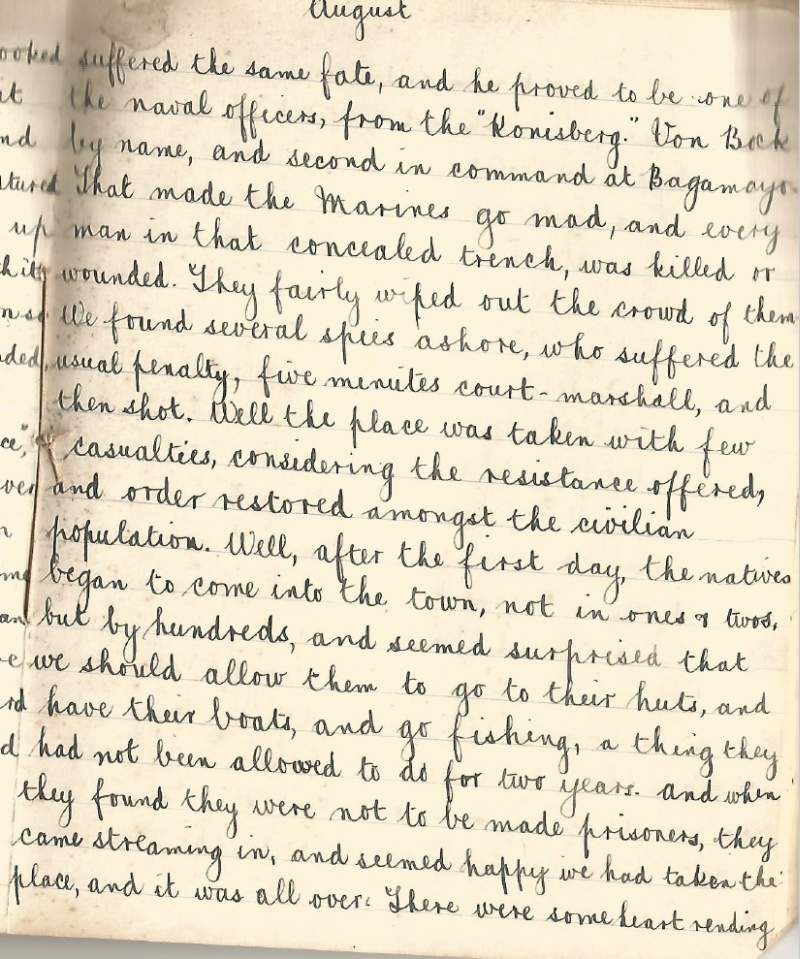 August
suffered the same fate, and he proved to be one of
the naval officers, from the "Konisberg." Von Bock
by name, and second in command at Bagamayo.
That made the Marines go mad, and every
man in that concealed trench, was killed or
wounded. They fairly wiped out the crowd of them
We found several spies ashore, who suffered the
usual penalty, five menutes court-marshall, and
then shot. Well the place was taken with few
casualties, considering the resistance offered,
and order restored amongst the civilian
population. Well, after the first day, the natives
began to come into the town, not in ones & twos,
but by hundreds, and seemed surprised that
we should allow them to go to their huts, and
have their boats, and go fishing, a thing they
had not been allowed to do for two years. and when
they found they were not to be made prisoners, they
came streaming in, and seemed happy we had taken the
place, and it was all over. There were some heart rending